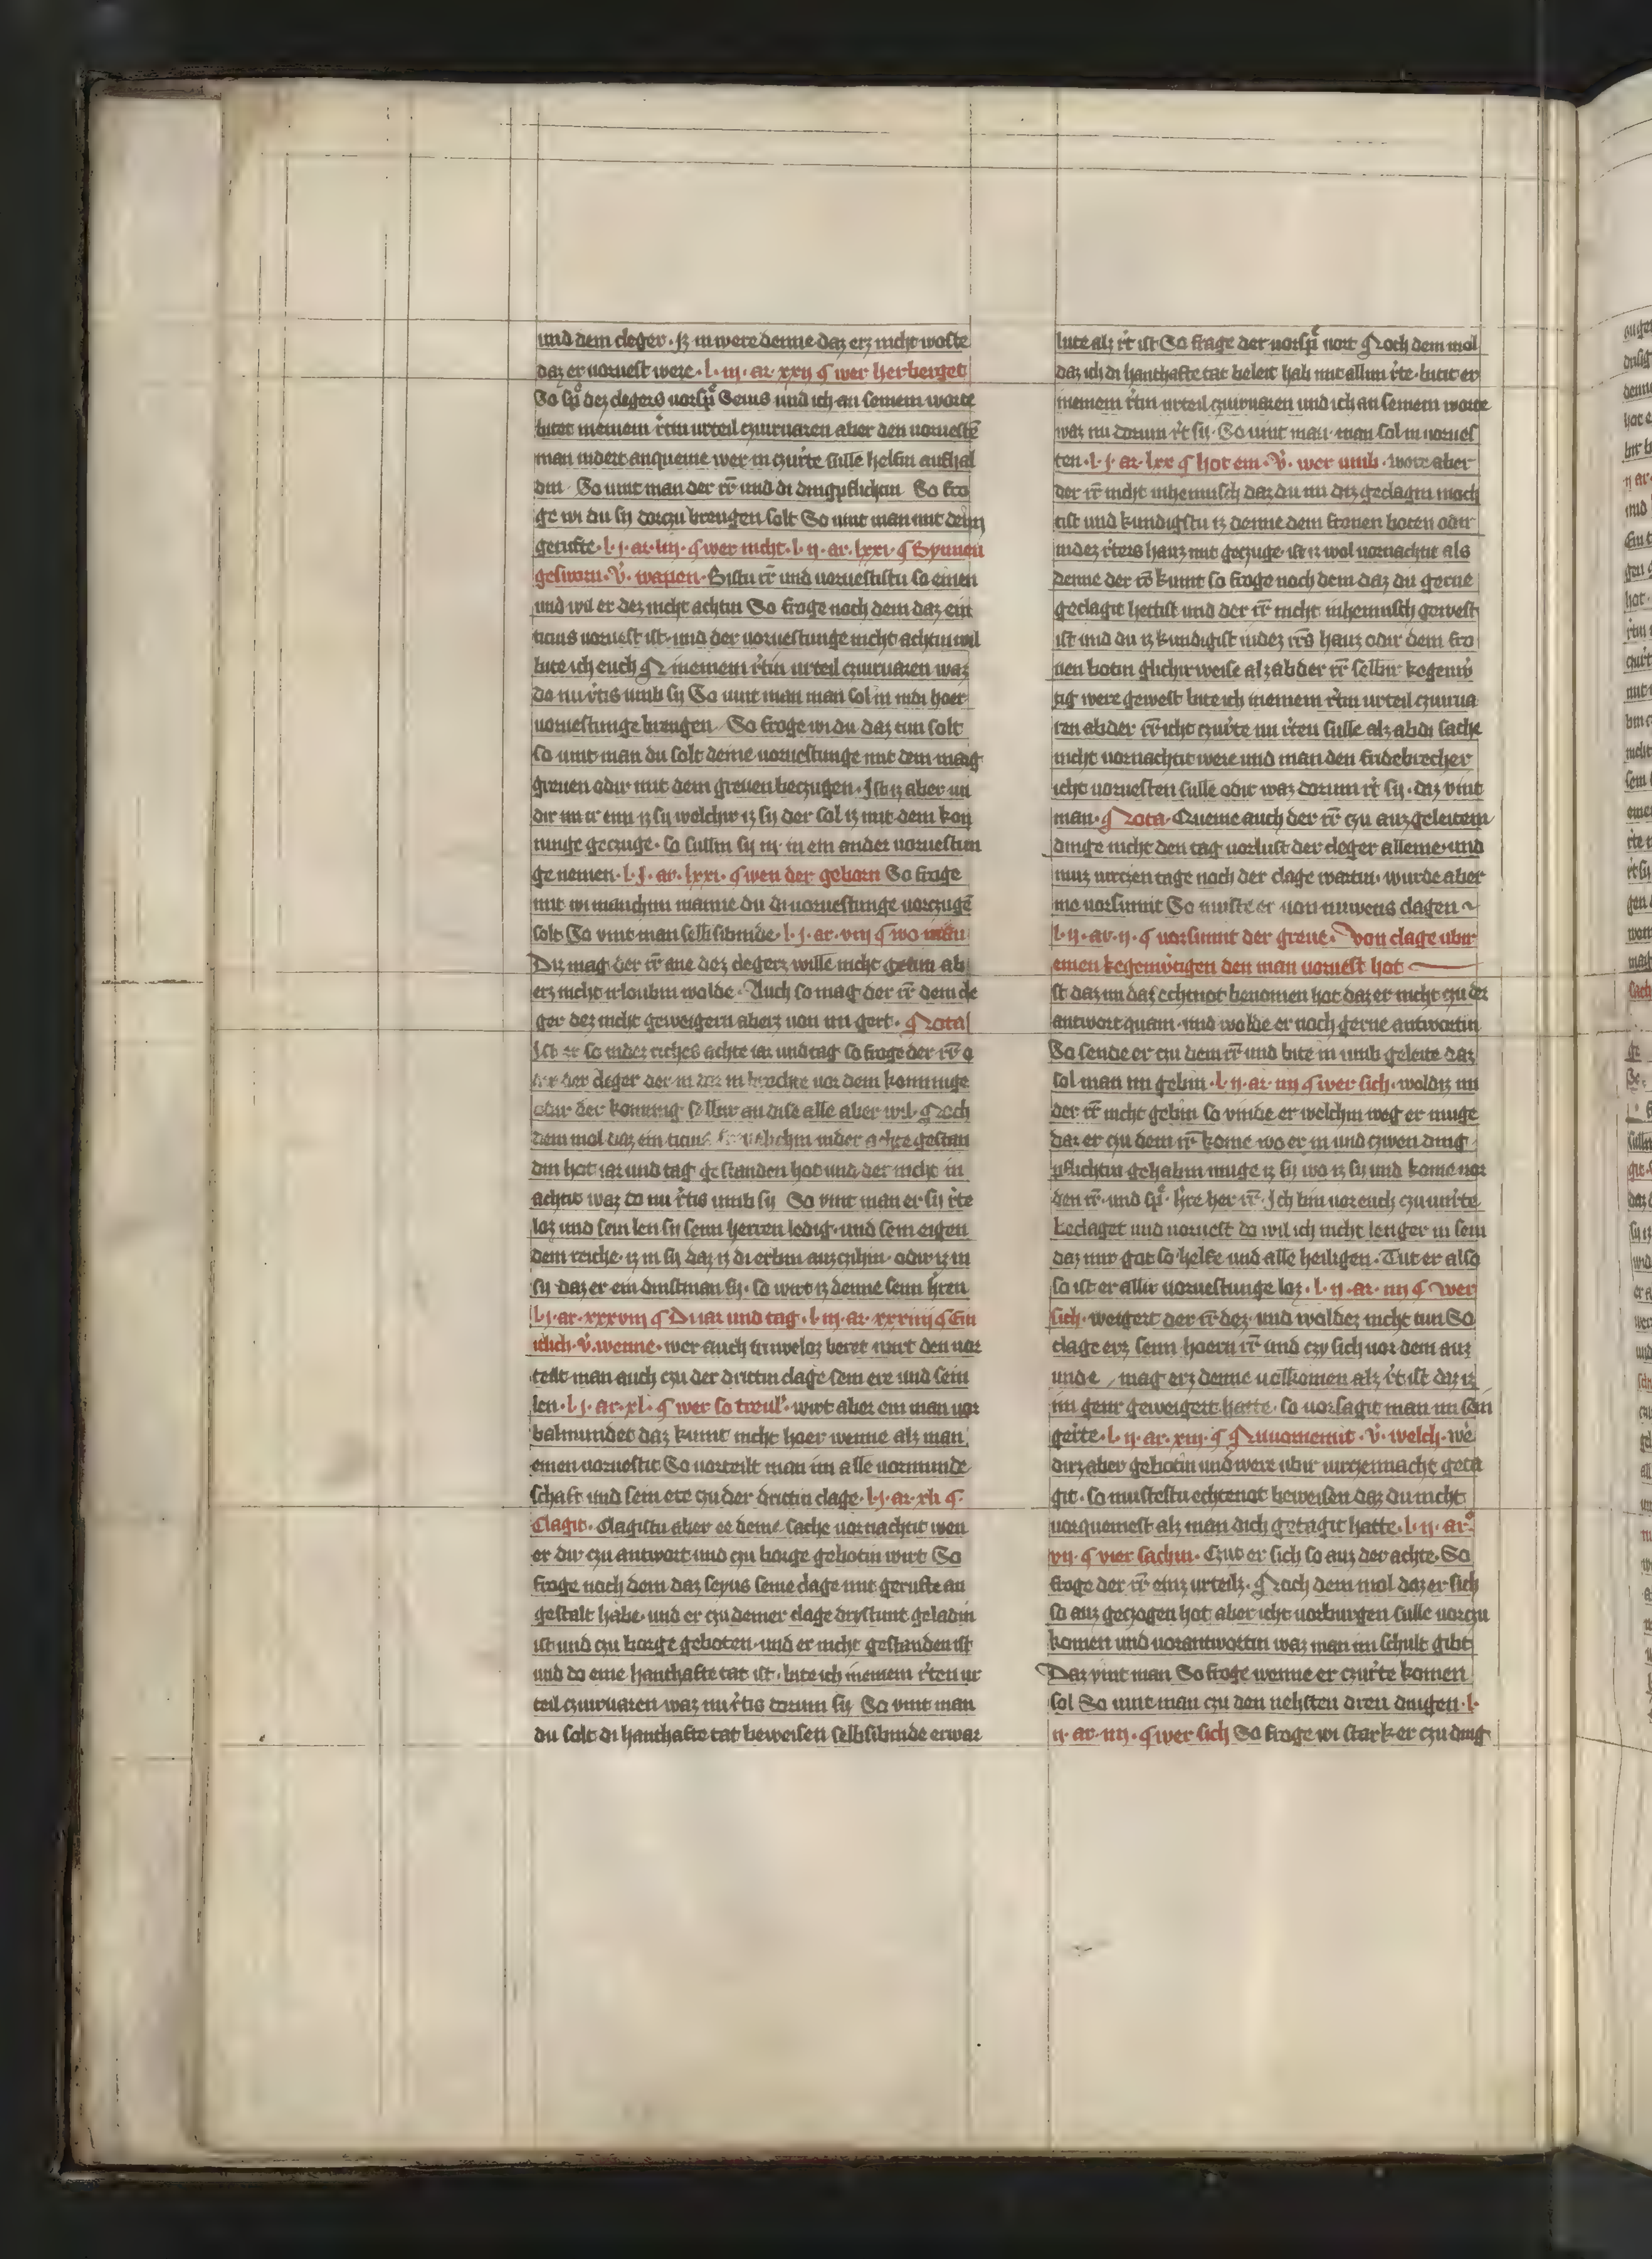 und dem cleger · Iz inwere denne daz erz nicht woste
daz er voruest were · l · iij · ar · xxij ¶ wer herberget
So spͨ dez clegers vorspͨ Seius und ich an seinem worte
bitet meinem rͨtin urteil czuiruaren aber den voruestē
man indert anqueme wer im czurͨte sulle helfin aufhal
din · So vint man der rr̄ und di dingpflichtin So fro
ge wi du sy dorczu brengen solt So vint man mit dem
gerufte · l · j · ar · liij · ¶ wer nicht · l · ij · ar · lxxi · ¶ Bynnen
gesworn · v̄ · wapen · Bistu rr̄ und voruestistu so einen
und wil er dez nicht achtin So froge noch dem daz ein
ticius voruest ist · und der voruestunge nicht achtin wil
bite ich euch N meinem rͨtin urteil czuiruaren waz
do nu rͨtis umb sy So vint man man sol in indi hoer
voruestunge brengen · So froge wi du daz tun solt
so vint man du solt deine voruestunge mit dem marg
greuen odir mit dem greuen beczugen · Ist iz abir un
dir in ir ein iz sy welchir iz sy der sol iz mit dem kon
nunge geczuge · so sullin sy in · in ein ander voruestun
ge nemen · l · j · ar · lxxi · ¶ wen der geborn So froge
mit wi manchim manne du di voruestunge vorczugē
solt So vint man selbsibinde · l · j · ar · viij ¶ wo man
Diz mag der rr̄ ane dez clegerz wille nicht getun ab
erz nicht irloubin wolde · Auch so mag der rr̄ dem cle
ger dez nicht geweigern aberz von im gert · ¶ Nota
Ist er so inder riches achte iar und tag so froge der rr̄ o
der der cleger der in dor in brechte vor dem konninge
odir der konnig selbir an dise alle aber wil · Noch
dem mol daz ein ticius inder achte gestan
din hot iar und tag gestanden hot und der nicht in
achtit waz do nu rͨtis umb sy So vint man er sy rͨte
loz und sein len sy seim herren ledig · und sein eigen
dem reiche · iz in sy daz iz di erbin auzczihin · odir iz in
sy daz er ein dinstman sy · so wirt iz denne seim hͨren
l · j · ar · xxxviij ¶ Di iar und tag · l · iij · ar · xxxiiij ¶ Ein
iclich · v̄ · wenne · wer auch truweloz beret wirt den vor
teilt man auch czu der drittin clage sein ere und sein
len · l · j · ar · xl · ¶ wer so treul · wirt aber ein man vor
balmundet daz kumt nicht hoer wenne alz man
einen voruestit So vorteilt man im alle vormunde
schaft und sein ere czu der drittin clage · l · j · ar · xli ¶ ·
Clagit · Clagistu aber ee deine sache vornachtit wen
er dir czu antwort und czu borge gebotin wirt So
froge noch dem daz seyus seine clage mit gerufte an
gestalt habe · und er czu deiner clage drystunt geladin
ist und czu borge geboten · und er nicht gestanden ist
und do eine hanthafte tat ist · bite ich meinem rͨten ur
teil czuiruaren waz nu rͨtis dorum sy So vint man
du solt di hanthafte tat beweisen selbsibinde erwar
lute alz rͨt ist So frage der vorspͨ vort Noch dem mol
daz ich di hanthafte tat beleit hab mit allim rͨte · bitit er
meinem rͨtin urteil czuiruaren und ich an seinem worte
waz nu dorum rͨt sy · So vint man · man sol in vorues
ten · l · j · ar · lxx ¶ hot ein · v̄ · wer umb · were aber
der rr̄ nicht inheimisch daz du im diz geclagin moch
tist und kundigstu iz denne dem fronen boten odir
indez rͨters hauz mit geczuge · ist iz wol vornachtit als
denne der rr̄ kumt so froge noch dem daz du gerne
geclagit hettist und der rr̄ nicht inheimisch gewest
ist und du iz kundigist indez rr̄s hauz odir dem fro
nen botin glichir weise alz ab der rr̄ selbir kegenw̄
tig were gewest bite ich meinem rͨtin urteil czuirua
ren ab der rr̄ icht czurͨte im rͨten sulle alz ab di sache
nicht vornachtit were und man den fridebrecher
icht voruesten sulle odir waz dorum rͨt sy · daz vint
man · ¶ Nota · Queme auch der rr̄ czu auzgeleitem
dinge nicht den tag vorlust der cleger alleine · und
muz virczen tage noch der clage wartin · wurde aber
me vorsumit So muste er von nuwens clagen
l · ij · ar · ij · ¶ vorsumit der greue · Von clage ubir
einen kegenwͨtigen den man voruest hot
st daz im daz echtnot benomen hot daz er nicht czu der
antwort quam · und wolde er noch gerne antwortin
So sende er czu dem rr̄ und bite in umb geleite daz
sol man im gebin · l · ij · ar · iiij ¶ wer sich · woldiz im
der rr̄ nicht gebin so vinde er welchin weg er muge
daz er czu dem rr̄ kome wo er in und czwen ding
pflichtin gehabin muge iz sy wo iz sy und kome vor
den rr̄ · und spͨ · hͨre her rr̄ · Ich bin vor euch czu unrͨte
beclaget und voruest do wil ich nicht lenger in sein
daz mir got so helfe und alle heiligen · Tut er also
so ist er allir voruestunge loz · l · ij · ar · iiij ¶ wer
sich · weigert der rr̄ dez · und woldez nicht tun So
clage erz seim hoern rr̄ und czy sich vor dem auz
unde mag erz denne volkomen alz rͨt ist daz iz
im genr geweigert hatte · so vorsagit man im sein
gerͨte · l · ij · ar · xiij · ¶ Nu vornemit · v̄ · welch · wē
dirz aber gebotin und were ubir virczennacht geta
git · so mustestu echtenot beweisen daz du nicht
vorquemest alz man dich getagit hatte · l · ij · ar ·
vij · ¶ vier sachin · Czut er sich so auz der achte · So
froge der rr̄ einz urteilz · Noch dem mol daz er sich
so auz geczogen hot aber icht vorburgen sulle vorczu
komen und vorantwortin waz man im schult gibt
Daz vint man So froge wenne er czurͨte komen
sol So vint man czu den nehsten dren dingen · l ·
ij · ar · iiij · ¶ wer sich So froge wi stark er czu ding